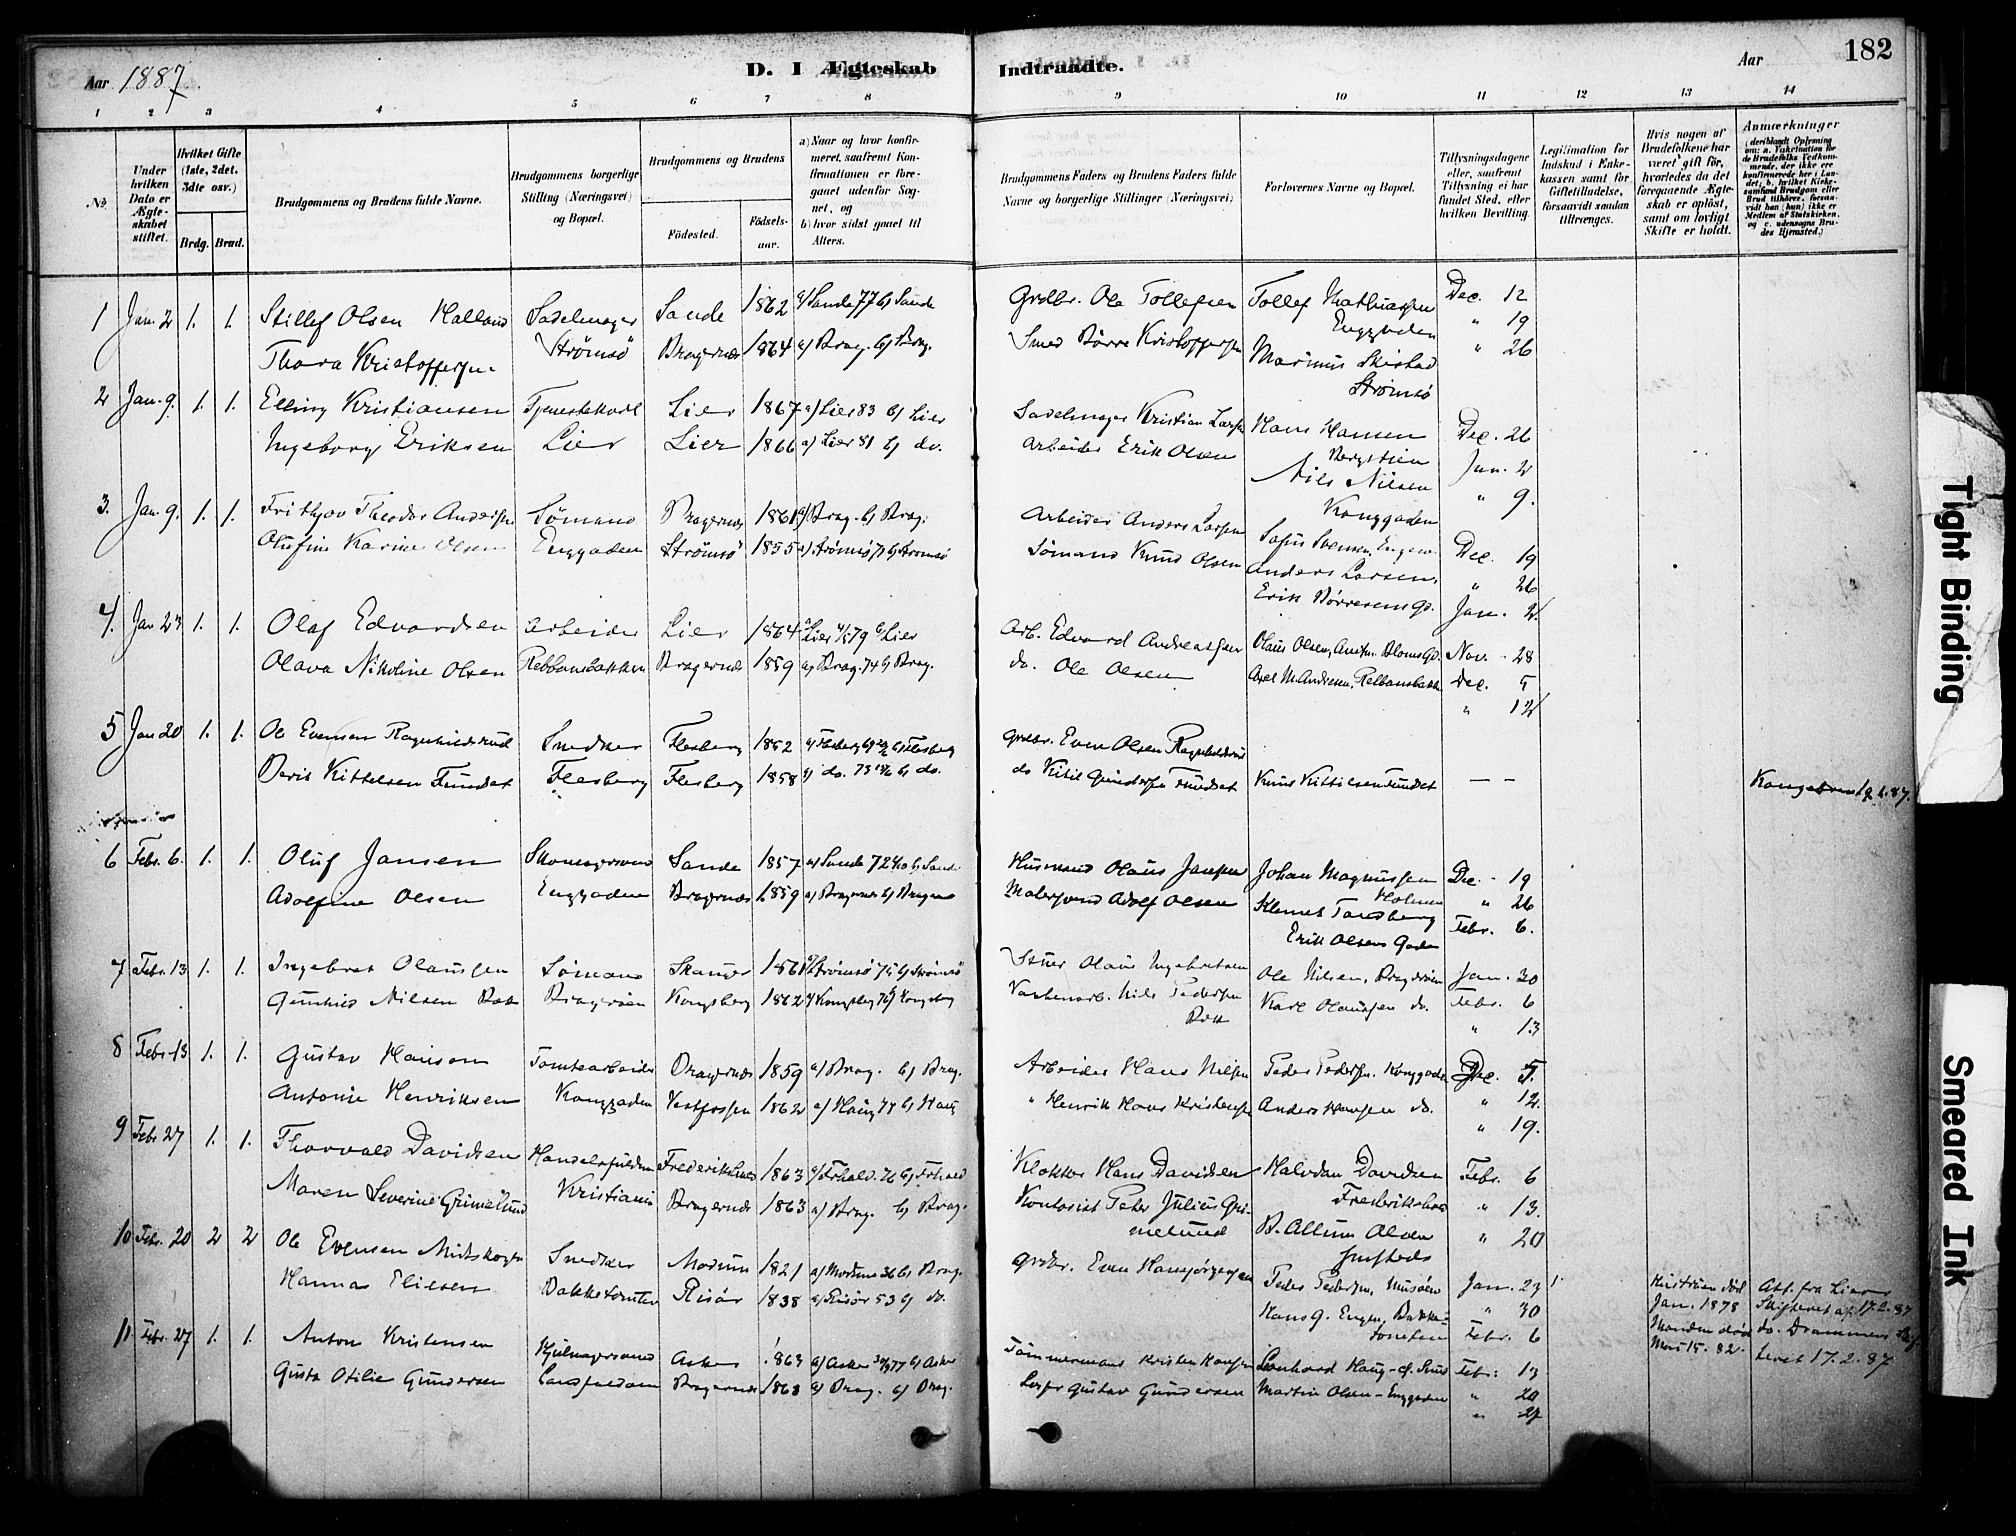 Aar 1887.
D. I Ægteskab
Indtraadte.
Aar
182
1 2 3 4 5 6 7 8 9 10 11 12 13 14
No.
Under hvilken Dato er Ægteskabet stiftet.
Hvilket Gifte (1ste, 2det, 3die osv.)
Brdg. Brud.
Brudgommens og Brudens fulde Navne.
Brudgommens borgerlige Stilling (Næringsvei) og Bopæl.
Brudgommens og Brudens
Födested.
Födselsaar.
a) Naar og hvor konfirmeret, saafremt Konfirmationen er foregaaet udenfor Sognet, og
b) hvor sidst gaaet til Alters.
Brudgommens Faders og Brudens Faders fulde Navne og borgerlige Stillinger (Næringsvei)
Forlovernes Navne og Bopæl.
Tillysningsdagene eller, saafremt Tillysning ei har fundet Sted, efter hvilken Bevilling.
Legitimation for Indskud i Enkekassen samt for Giftetilladelse, forsaavidt saadan tiltrænges.
Hvis nogen af Brudefolkene har været gift för, hvorledes da det foregaaende Ægteskab er oplöst, samt om lovligt Skifte er holdt.
Anmærkninger
1 Jan. 2 1. 1. Stillef Olsen Halland Sadelmager Sande 1862 a) Sande 77 b) Sande Grdbr. Ole Tollefsen Tollef Mathiassen Dec. 12
Enggaden " 19
Thora Kristoffersen Strømsö Bragernæs 1864 a) Brag. b) Brag. Smed Børre Kristoffersen Marinus Skistad " 26
Strømsö
2 Jan. 9. 1. 1. Elling Kristiansen Tjenestekarl Lier 1867 a) Lier 83 b) Lier Sadelmager Kristian Larsen Hans Hansen Dec. 26
Ingeborg Eriksen Lier Lier 1866 a) Lier 81 b) do. Arbeider Erik Olsen Bergstien Jan. 2
Nils Nilsen " 9.
Konggaden
3. Jan. 9. 1. 1. Frithjov Theodor Andersen Sømand Bragernæs 1861 a) Brag. b) Brag. Arbeider Anders Larsen Sofus Svensen, Dec. 19
Olufine Karine Olsen Enggaden Strømsö 1855 a) Strømsö b) Strømsö Sømand Knud Olsen Anders Larsen, " 26
Erik Børresens Gd. Jan. 2
4. Jan 23 1. 1. Olaf Edvardsen Arbeider Lier 1864 Lier 79 b) Lier Arb. Edvard Andreassen Olaus Olsen, Bloms Gd. Nov. 28
Olava Nikoline Olsen Rebbansbakken Bragernæs 1859 a) Brag. 74 b) Brag. do. Ole Olsen Axel M. Andresen, Rebbansbakk Dec. 5
" 12
5 Jan 20 1. 1. Ole Evensen Ragnhildsrud Snedker Flesberg 1852 a) Flesberg b) Flesberg Grdbr. Even Olsen Ragnhildsrud
Berit Kittelsen Fundset Flesberg Flesberg 1858 a) do. 73 b) do. do Kittil Gundersen Fundset Knud Kittilsen Fundset — — Kongebrev 19.1.87.
6 Febr. 6. 1. 1. Oluf Jansen Skomagersvend Sande 1857 a) Sande 72 b) Sande Husmand Olaus Jansen Johan Magnussen Dec. 19
Holmen " 26
Adolfine Olsen Enggaden Bragernæs 1859 a) Bragernæs b) Bragernæs Malersvend Adolf Olsen Klemet Tandberg Febr. 6.
Erik Olsens Gaden
7 Febr. 13 1. 1. Ingebret Olaussen Sømand Skauger 1861 a) Strømsö 75 b) Strømsö Olaus Ingebretsen Ole Nilsen, Bragerøen Jan. 30
Gunhild Nilsen Bragerøen Kongsberg 1862 a) Kongsberg 76 b) Kongsberg Nils Pedersen Karl Olaussen do. Febr. 6
" 13
8 Febr. 13 1. 1. Gustav Hansen Tomtearbeider Bragernæs 1859 a) Brag. b) Brag. Arbeider Hans Nilsen Peder Pedersen. Konggaden Dec. 5.
Antonie Henriksen Konggaden Vestfossen 1862 a) Haug 77 b) Haug " Henrik Hans Kristensen Anders Hansen do. " 12.
" 19.
9 Febr 27 1. 1. Thorvald Davidsen Handelsfuldm Frederikshald 1863 a) Frhald. 76 b) Frhald Klokker Hans Davidsen Halvdan Davidsen Febr. 6
Maren Severine Grimelund Kristiania Bragernæs 1863 a) Brag. b) Brag. Kontorist Peter Julius Gri- Frederikshald " 13.
melund B. Allum Olsen " 20
10 Febr. 20 2 2 Ole Evensen Midtskogen Snedker Modum 1821 a) Modum 36 b) Brag. Grdbr. Even Hansjørgensen Peder Pedersen, Jan. 23 Hustruen død Att. fra Liers
Hanna Eliesen Bakketomten Risör 1838 a) Risör 53 b) do. Hans G. Engen, Bakke- " 30 Jan. 1878 Skifteret af 17.2.87
tomten Febr. 6 Manden død do. Drammens
Mars 15. 82. 17.2.87
11. Febr. 27 1. 1. Anton Kristensen Hjulmagersvend Asker 1863 a) Asker 77 b) Asker Tømmermand Kristen Hansen Leonhard Haug Febr. 13
Gusta Otilie Gundersen Landfaldøen Bragernæs 1868 a) Brag. b) Brag. Gustav Gundersen Martin Olsen - Enggaden " 20
" 27
Tight Binding
Smeared Ink